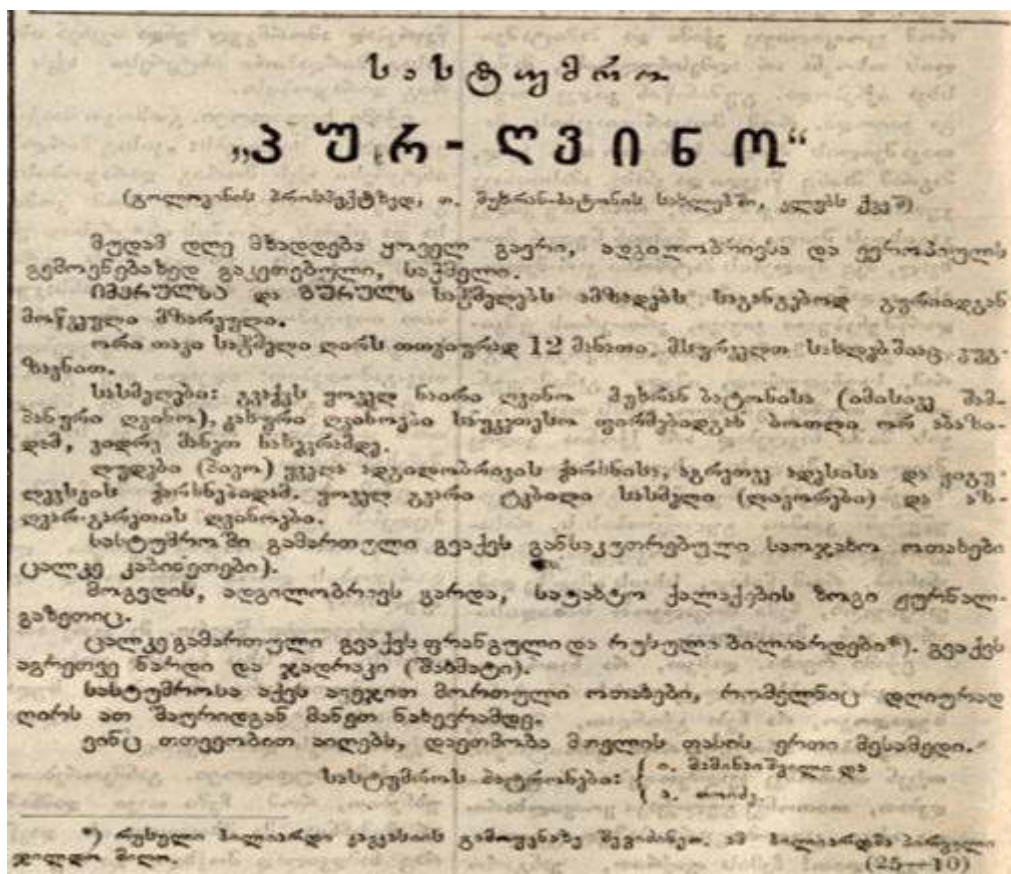 სასტუმრო
„პურ-ღვინო“
(გოლოვინის პროსპექტზედ, თ. მუხრან-ბატონის სახლებში, კლუბს ქვეშ)
მუდამ დღე მზადდება ყოველ გვარი, ადგილობრივსა და ევროპიულს
გემოვნებაზედ გაკეთებული, საჭმელი.
იმერულსა და გურულს საჭმელებს ამზადებს საგანგებოდ გურიიდგან
მოწვეული მზარეული.
ორი თავი საჭმელი ღირს თთვიურად 12 მანათი, მსურველთ სახლებშიაც ვუგ-
ზავნით.
სასმელები: გვაქვს ყოველ ნაირი ღვინო მუხრან ბატონისა (იმისივე შამ-
პანური ღვინო), კახური ღვინოები საუკეთესო ფირმებიდგან ბოთლი ორ აბაზი-
დამ, ვიდრე მანეთ ნახევრამდე.
ლუდები (პივო) ყველა ადგილობრივის ქარხნისა, აგრეთვე ადესისა და ჟიგუ-
ლევსკის ქარხნებიდამ. ყოველ გვარი ტკბილი სასმელი (ლიკორები) და საზ-
ღვარ-გარეთის ღვინოები.
სასტუმროში გამართული გვაქვს განსაკუთრებული საოჯახო ოთახები
ცალკე კაბინეთები).
მოგვდის, ადგილობრივს გარდა, სატახტო ქალაქების ზოგი ჟურნალ-
გაზეთიც.
ცალკე გამართული გვაქვს ფრანგული და რუსული ბილიარდები*). გვაქვს
აგრეთვე ნარდი და ჭადრაკი (შახმატი).
სასტუმროსა აქვს ავეჯით მორთული ოთახები, რომელნიც დღიურად
ღირს ათ შაურიდგან მანეთ ნახევრამდე.
ვინც თთვეობით აიღებს, დაეთმობა მთელის ფასის ერთი მესამედი.
სასტუმროს პატრონები: { ი. მამინაიშვილი და
{ ა.
*) რუსული ბილიარდი კავკასიის გამოფენაზე შევიძინეთ. ამ ბილიარდმა პირველი
ჯილდო მიიღო. (25—10)